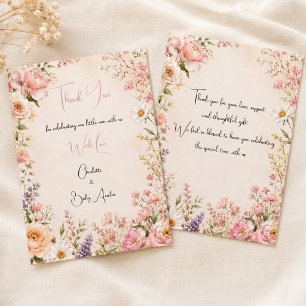 Thank You
for celebrating our little one with us
With Love
Charlotte
&
Baby Amelia
Thank you for your love, support
and thoughtful gift.
We feel so blessed to have you celebrating
this special time with us